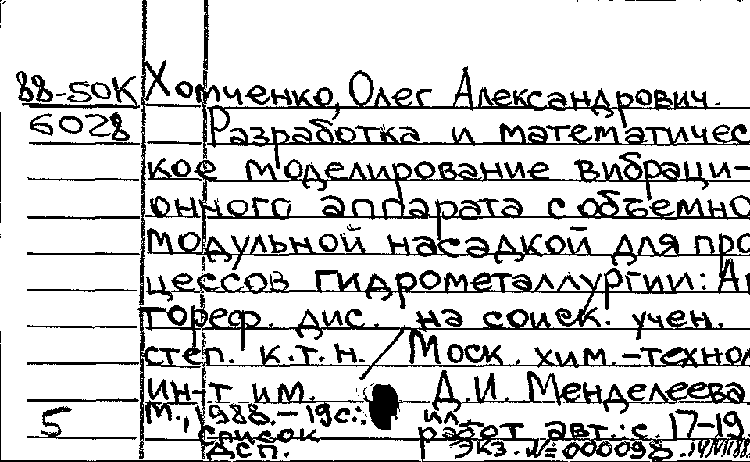 88-50К Хомченко, Олег Александрович.
6028 Разработка и математичес
кое моделирование вибраци-
онного аппарата с объемно
модульной насадкой для про
цессов гидрометаллургии: Ав
тореф. дис. на соиск. учен.
степ. к.т.н. Моск. хим.-технол
ин-т им. Д.И. Менделеева
М., 1988.-19с.: ил.
5 список работ авт.: с. 17-19
Дсп. Экз. №000098.